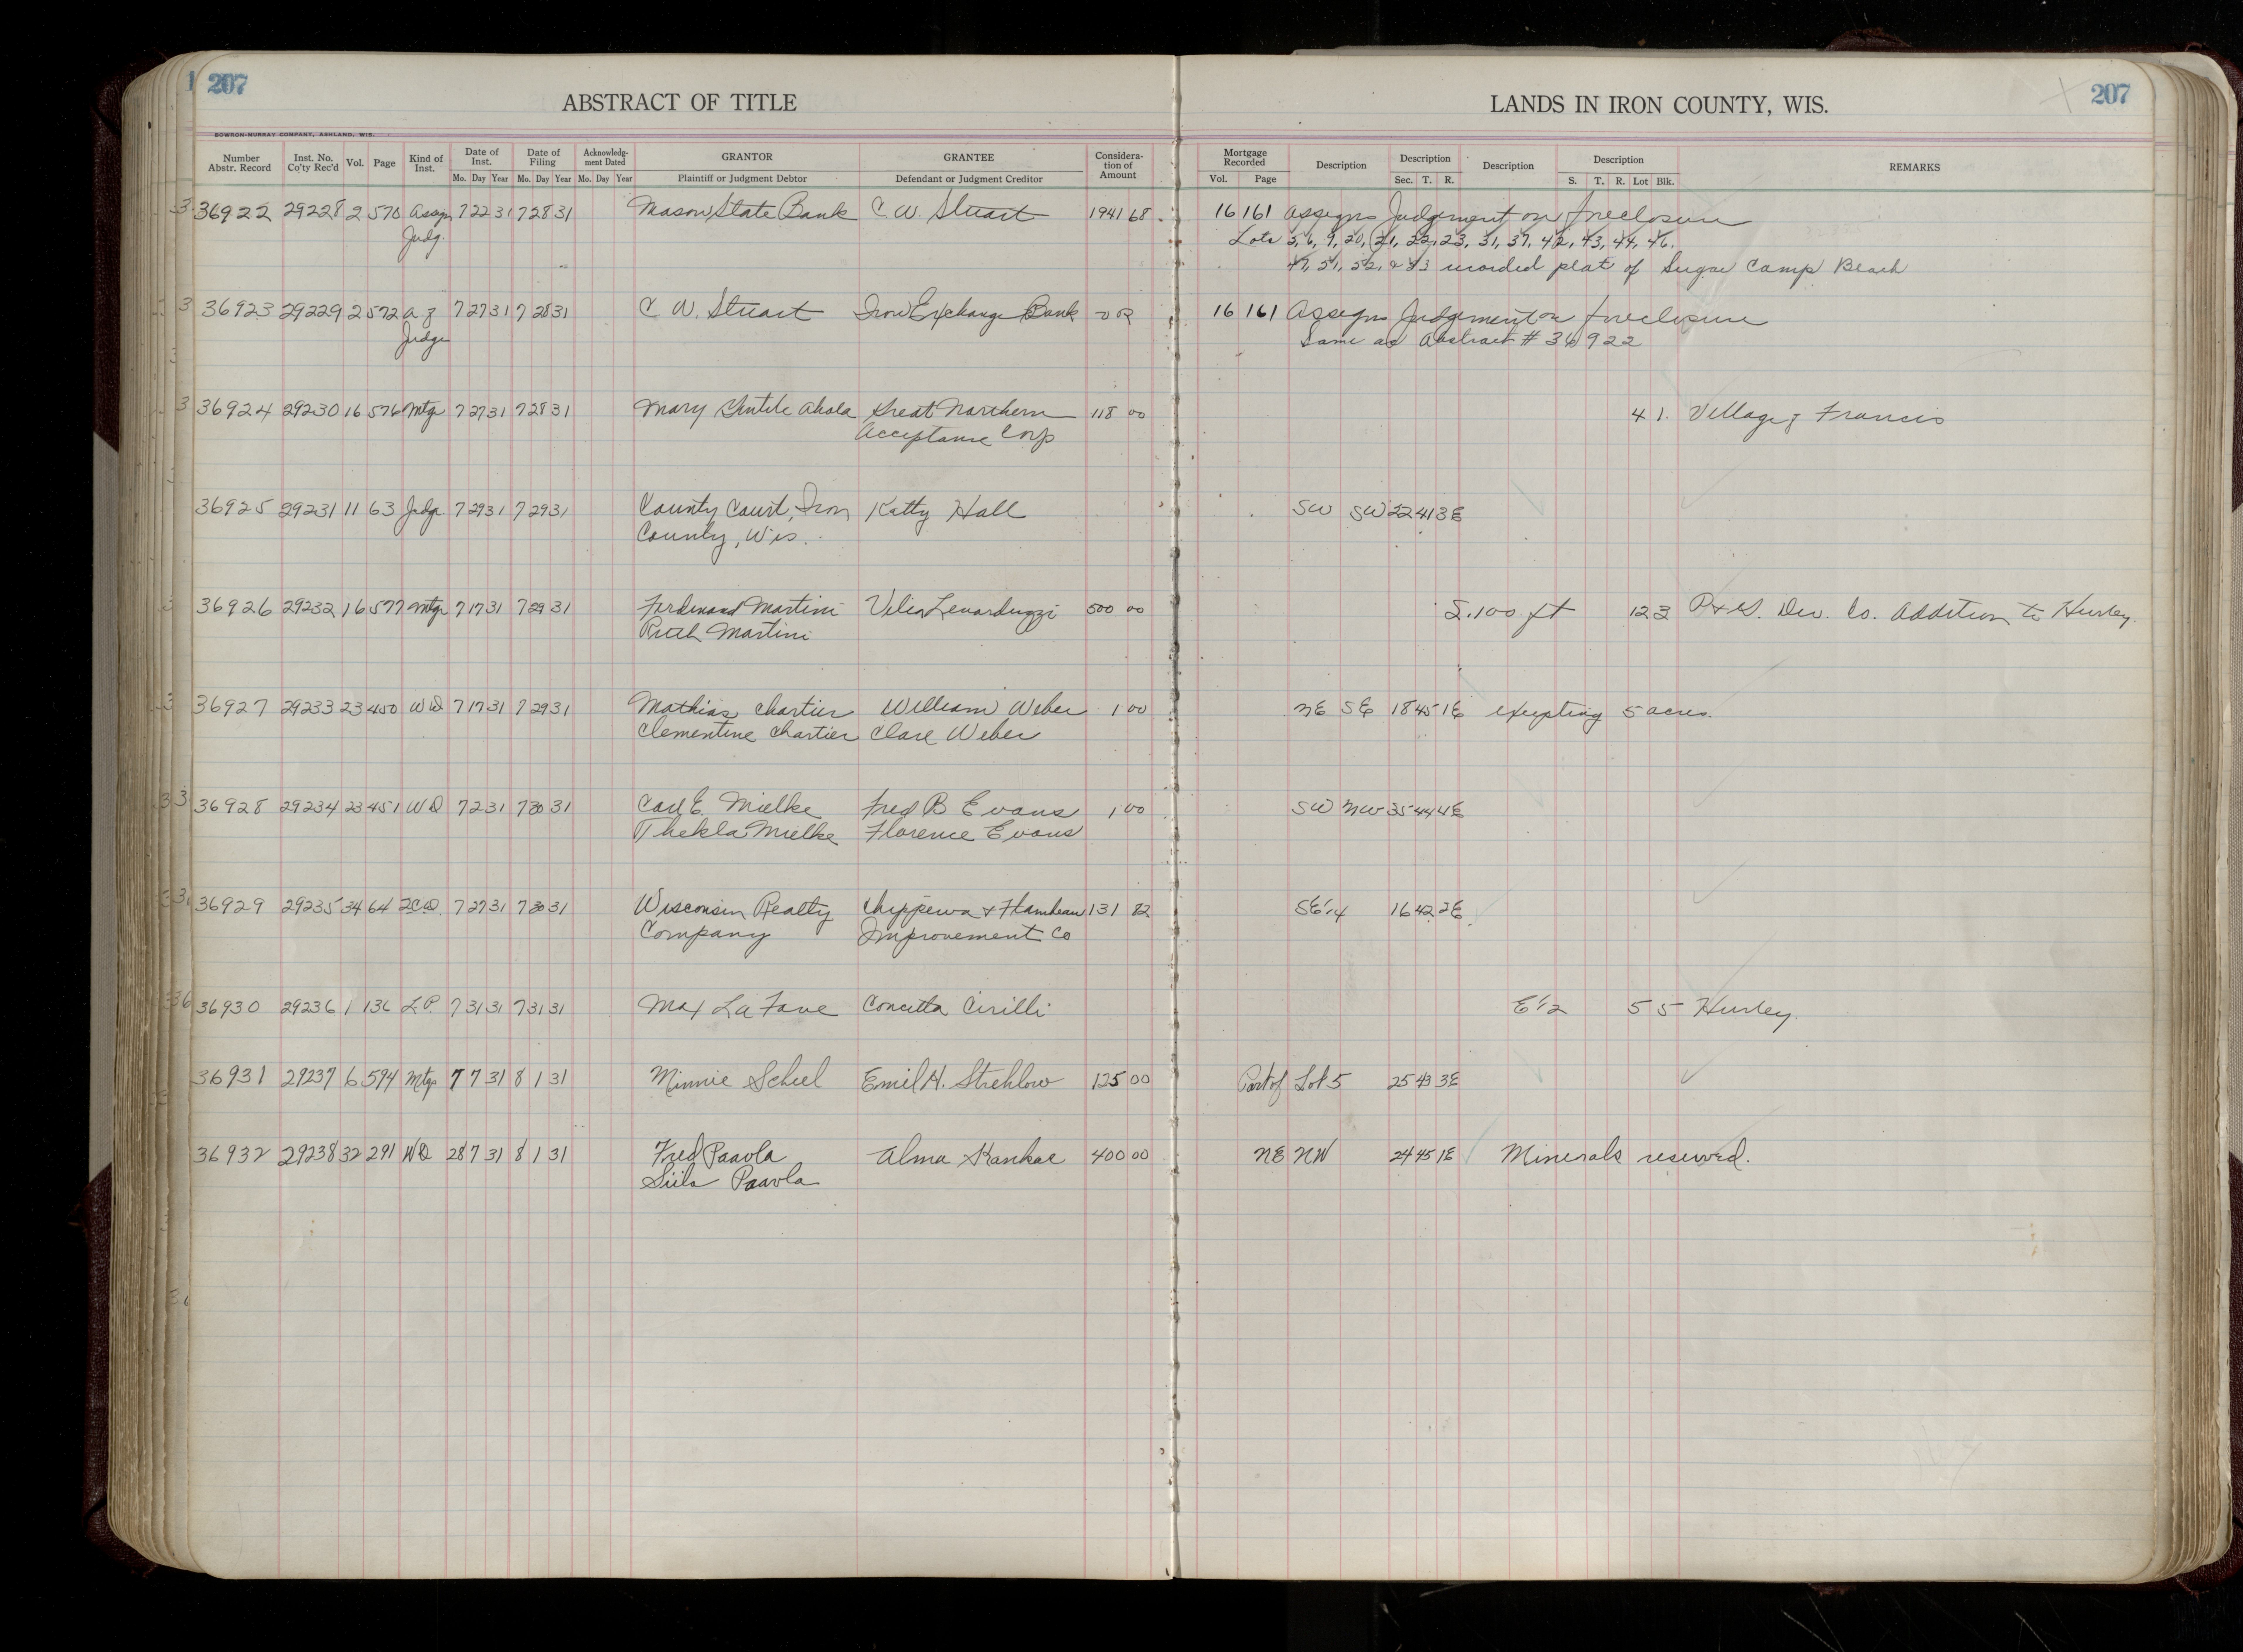 207
ABSTRACT OF TITLE
LANDS IN IRON COUNTY, WIS.
207
BOWRON-MURRAY COMPANY, ASHLAND, WIS.
Number Abstr. Record Inst. No. Co'ty Rec'd Vol. Page Kind of Inst. Date of Inst. Mo. Day Year Date of Filing Mo. Day Year Acknowledgment Dated Mo. Day Year GRANTOR Plaintiff or Judgment Debtor GRANTEE Defendant or Judgment Creditor Consideration of Amount Mortgage Recorded Vol. Page Description Description Sec. T. R. Description Description S. T. R. Lot Blk. REMARKS
36922 29228 2 570 Assign 7 22 31 7 28 31 Mason State Bank C W. Stuart 1941 68 16 161 Assigns Judgement on foreclosure
Judg. Lots 6, 9, 20, 21, 22, 23, 31, 37, 42, 43, 44, 46.
47, 51, 52, & 53 recorded plat of Sugar Camp Beach
36923 29229 2 572 7 27 31 7 28 31 C W. Stuart Iron Exchange Bank 16 161 Assigns Judgement on foreclosure
Judge Same as Abstract # 36922
36924 29230 16 576 Mtge 7 27 31 7 28 31 Mary Ahola Great Northern 118 00 4 1. Village of Francis
Acceptance Corp
36925 29231 11 63 Judge 7 29 31 7 29 31 County Court, Iron Katty Hall SW SW 22 41 3E
County, Wis.
36926 29232 16 577 Mtge 7 17 31 7 29 31 Ferdinand Martini Lenarduzzi 500 00 S. 100 ft 12 3 Dev. Co. Addition to Hurley.
Ruth Martini
36927 29233 23 450 WD 7 17 31 7 29 31 Mathias Chartier William Weber 1 00 NE SE 18 45 1E excepting 5 acres.
Clementine Chartier Clare Weber
36928 29234 23 451 WD 7 2 31 7 30 31 Carl E. Mielke Fred B Evans 1 00 SW NW 35 44 4E
Thekla Mielke Florence Evans
36929 29235 34 64 QCD 7 27 31 7 30 31 Wisconsin Realty Chippewa & Flambeau 131 82 SE 1/4 16 42 2E
Company Improvement Co
36930 29236 1 136 L.P. 7 31 31 7 31 31 Max La Fave Concetta Cirilli E 1/2 5 5 Hurley.
36931 29237 6 594 Mtge 7 7 31 8 1 31 Minnie Scheel Emil H. Strehlow 125 00 Part of Lot 5 25 43 3E
36932 29238 32 291 WD 28 7 31 8 1 31 Fred Paavola Alma Kankae 400 00 NE NW 24 45 1E Minerals reserved.
Siila Paavola